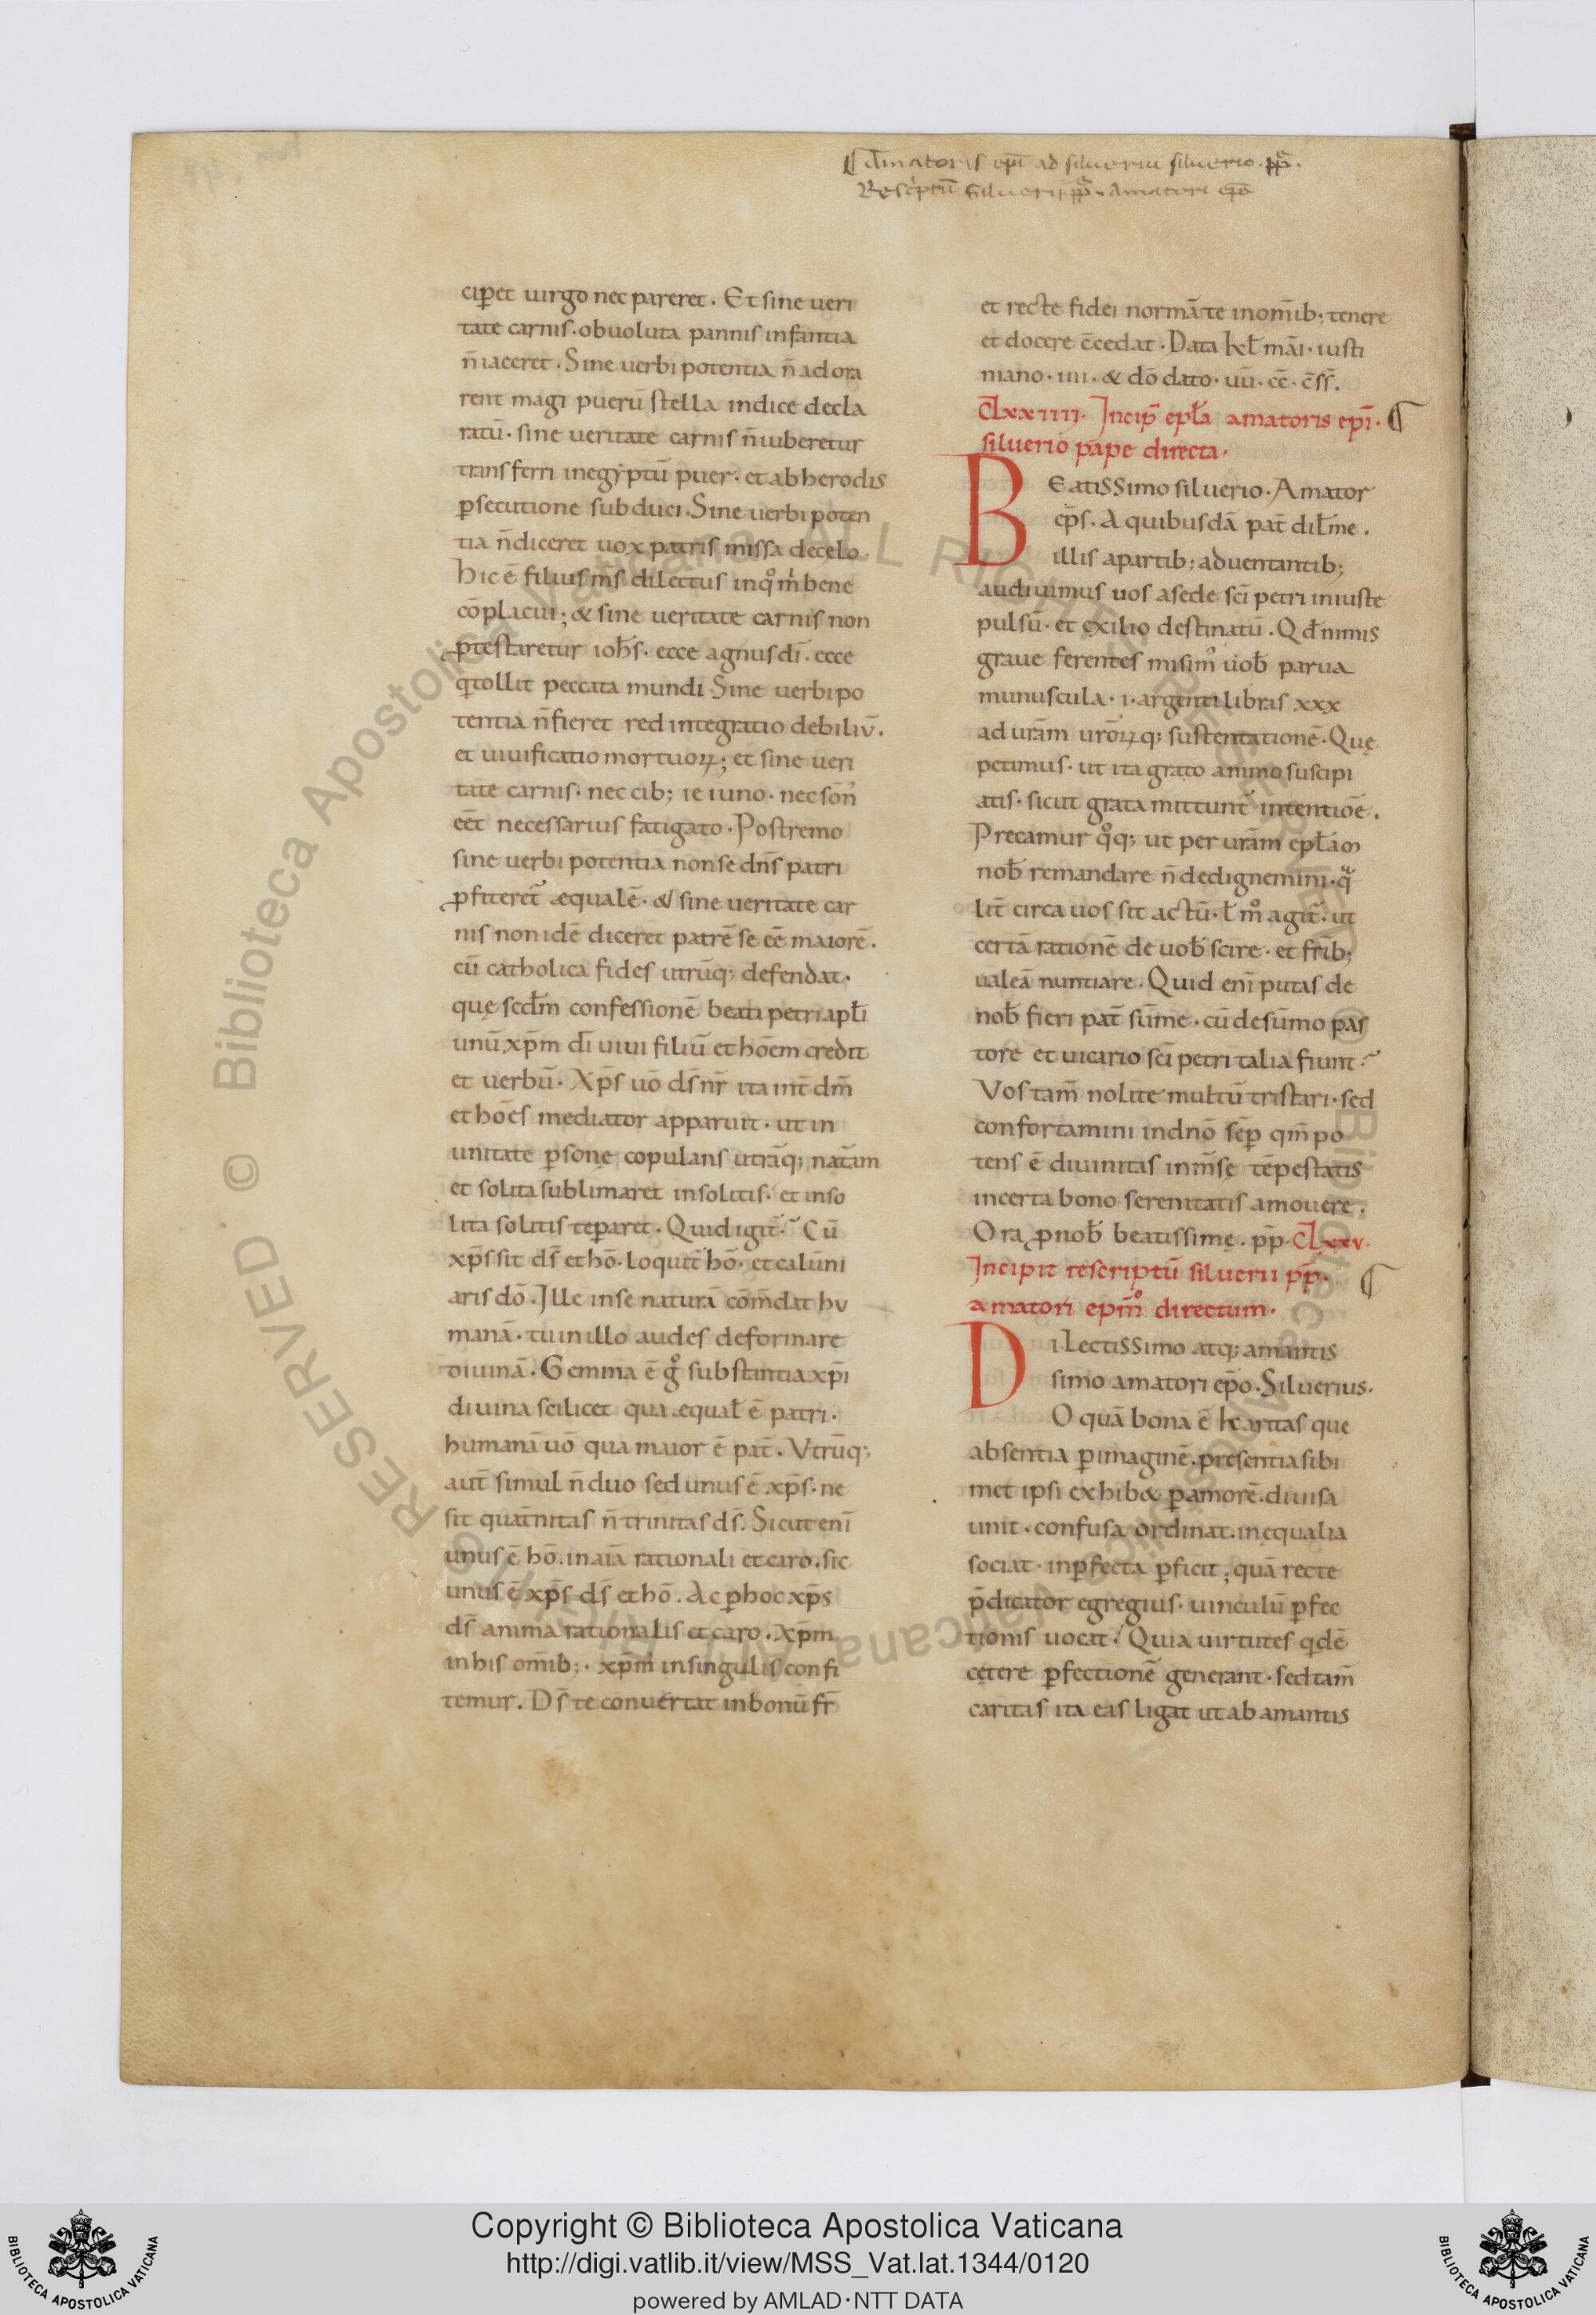 ¶ Amatoris ep̄i ad silueriū siluerio pp̄a.
Rescriptū siluerii pp̄a amatori ep̄o
cip̱et uirgo nec pareret. Et sine ueri
tate carnis. obuoluta pannis infantia
n̄ iaceret. Sine uerbi potentia n̄ adora
rent magi puerū stella indice decla
ratū. sine ueritate carnis n̄ iuberetur
transferri in egyptū puer. et ab herodis
p̱secutione subduci. Sine uerbi poten
tia n̄ diceret uox patris missa de celo.
hic ē filius m̄s dilectus in qͦ m̍ bene
cōplacui; & sine ueritate carnis non
ꝓtestaretur ioħs. ecce agnus dī. ecce
q̍ tollit peccata mundi Sine uerbi po
tentia n̄ fieret redintegratio debiliū.
et uiuificatio mortuoꝝ; et sine ueri
tate carnis. nec cib; ieiuno. nec sōn᾿
eēt necessarius fatigato. Postremo
sine uerbi potentia non se dn̄s patri
ꝓfiteret᷑ æqualē. & sine ueritate car
nis non idē diceret patrē se eē maiorē.
cū catholica fides utrūq; defendat.
quę secd̄m confessionē beati petri apl̄i
unū xp̄m dī uiui filiū et hōem credit
et uerbū. Xp̄s uō ds̄ nr̄ ita int̄ dm̄
et hōes mediator apparuit. ut in
unitate p̱sonę copulans utrāq; natā̄m
et solita sublimaret insolitis. et inso
lita solitis tēparet. Quid igit᷑? Cū
xp̄s sit ds̄ et hō. loquit᷑ hō. et calūni
aris dō. Ille in se naturā cōm̄dat hu
manā. tu in illo audes deformare
diuinā. Gemina ē gͦ substantia xp̄i
diuina scilicet qua equal̄ ē patri.
humanā uō qua maior ē pat̄. Vtrūq;
aut̄ simul n̄ duo sed unus ē xp̄s. ne
sit quat̄nitas n̄ trinitas ds̄. Sicut enī
unus ē hō. in aīa rationali et caro. sic
unus ē xp̄s ds̄ et hō. Ac p̱ hoc xp̄s
ds̄ anima rationalis et caro. Xp̄m
in his om̄ib;. xp̄m in singulis confi
temur. Ds̄ te conuertat in bonū fr̄
et recte fidei normā te in om̄ib; tenere
et docere c̄cedat. Data kl̄ māi. iusti
mano. iiii. & dō dato. uū. cc̄. c̄ss̄.
CLxxiiii. Incip̄ epl̄a amatoris ep̄i. ¶
siluerio pape directa.
BEatissimo siluerio. Amator
ep̄s. A quibusdā pat̄ dil̄me.
illis a partib; aduentantib;
audiuimus uos a sede sc̄i petri iniuste
pulsū. et exilio destinatū. Qd̄ nimis
graue ferentes misim᾿ uob̄ parua
munuscula. i. argenti libras xxx
ad urām urōꝝq; sustentationē. Quę
petimus. ut ita grato animo suscipi
atis. sicut grata mittunt᷑ intentiōe.
Precamur qͦq; ut per urām epl̄am
nob̄ remandare n̄ dedignemini. qͣ
lit̄ circa uos sit actū. l̄ mͦ agit᷑. ut
certā rationē de uob̄ scire. et fr̄ib;
ualeā nuntiare. Quid enī putas de
nob̄ fieri pat̄ sūme. cū de sūmo pas
tore et uicario sc̄i petri talia fiunt?
Vos tam̄ nolite multū tristari. sed
confortamini in dn̄o sēp̱ qm̄ po
tens ē diuinitas inm̄se tēpestatis
incerta bono serenitatis amouere.
Ora ꝓ nob̄ beatissimę. pp̄. CLxxv.
Incipit rescriptū siluerii pp̄. ¶
amatori ep̄mͦ directum.
DiLectissimo atq; amantis
simo amatori ep̄o. Siluerius.
O quā bona ē karitas que
absentia p̱ imaginē. presentia sibi
met ipsi exhib& p̱ amorē. diuisa
unit. confusa ordinat. inequalia
sociat. inp̱fecta p̱ficit; quā recte
p̄dicator egregius. uinculū p̱fec
tionis uocat! Quia uirtutes q̍dē
cetere p̱fectionē generant. sed tam̄
caritas ita eas ligat ut ab amantis
Copyright © Biblioteca Apostolica Vaticana
http://digi.vatlib.it/view/MSS_Vat.lat.1344/0120
powered by AMLAD·NTT DATA